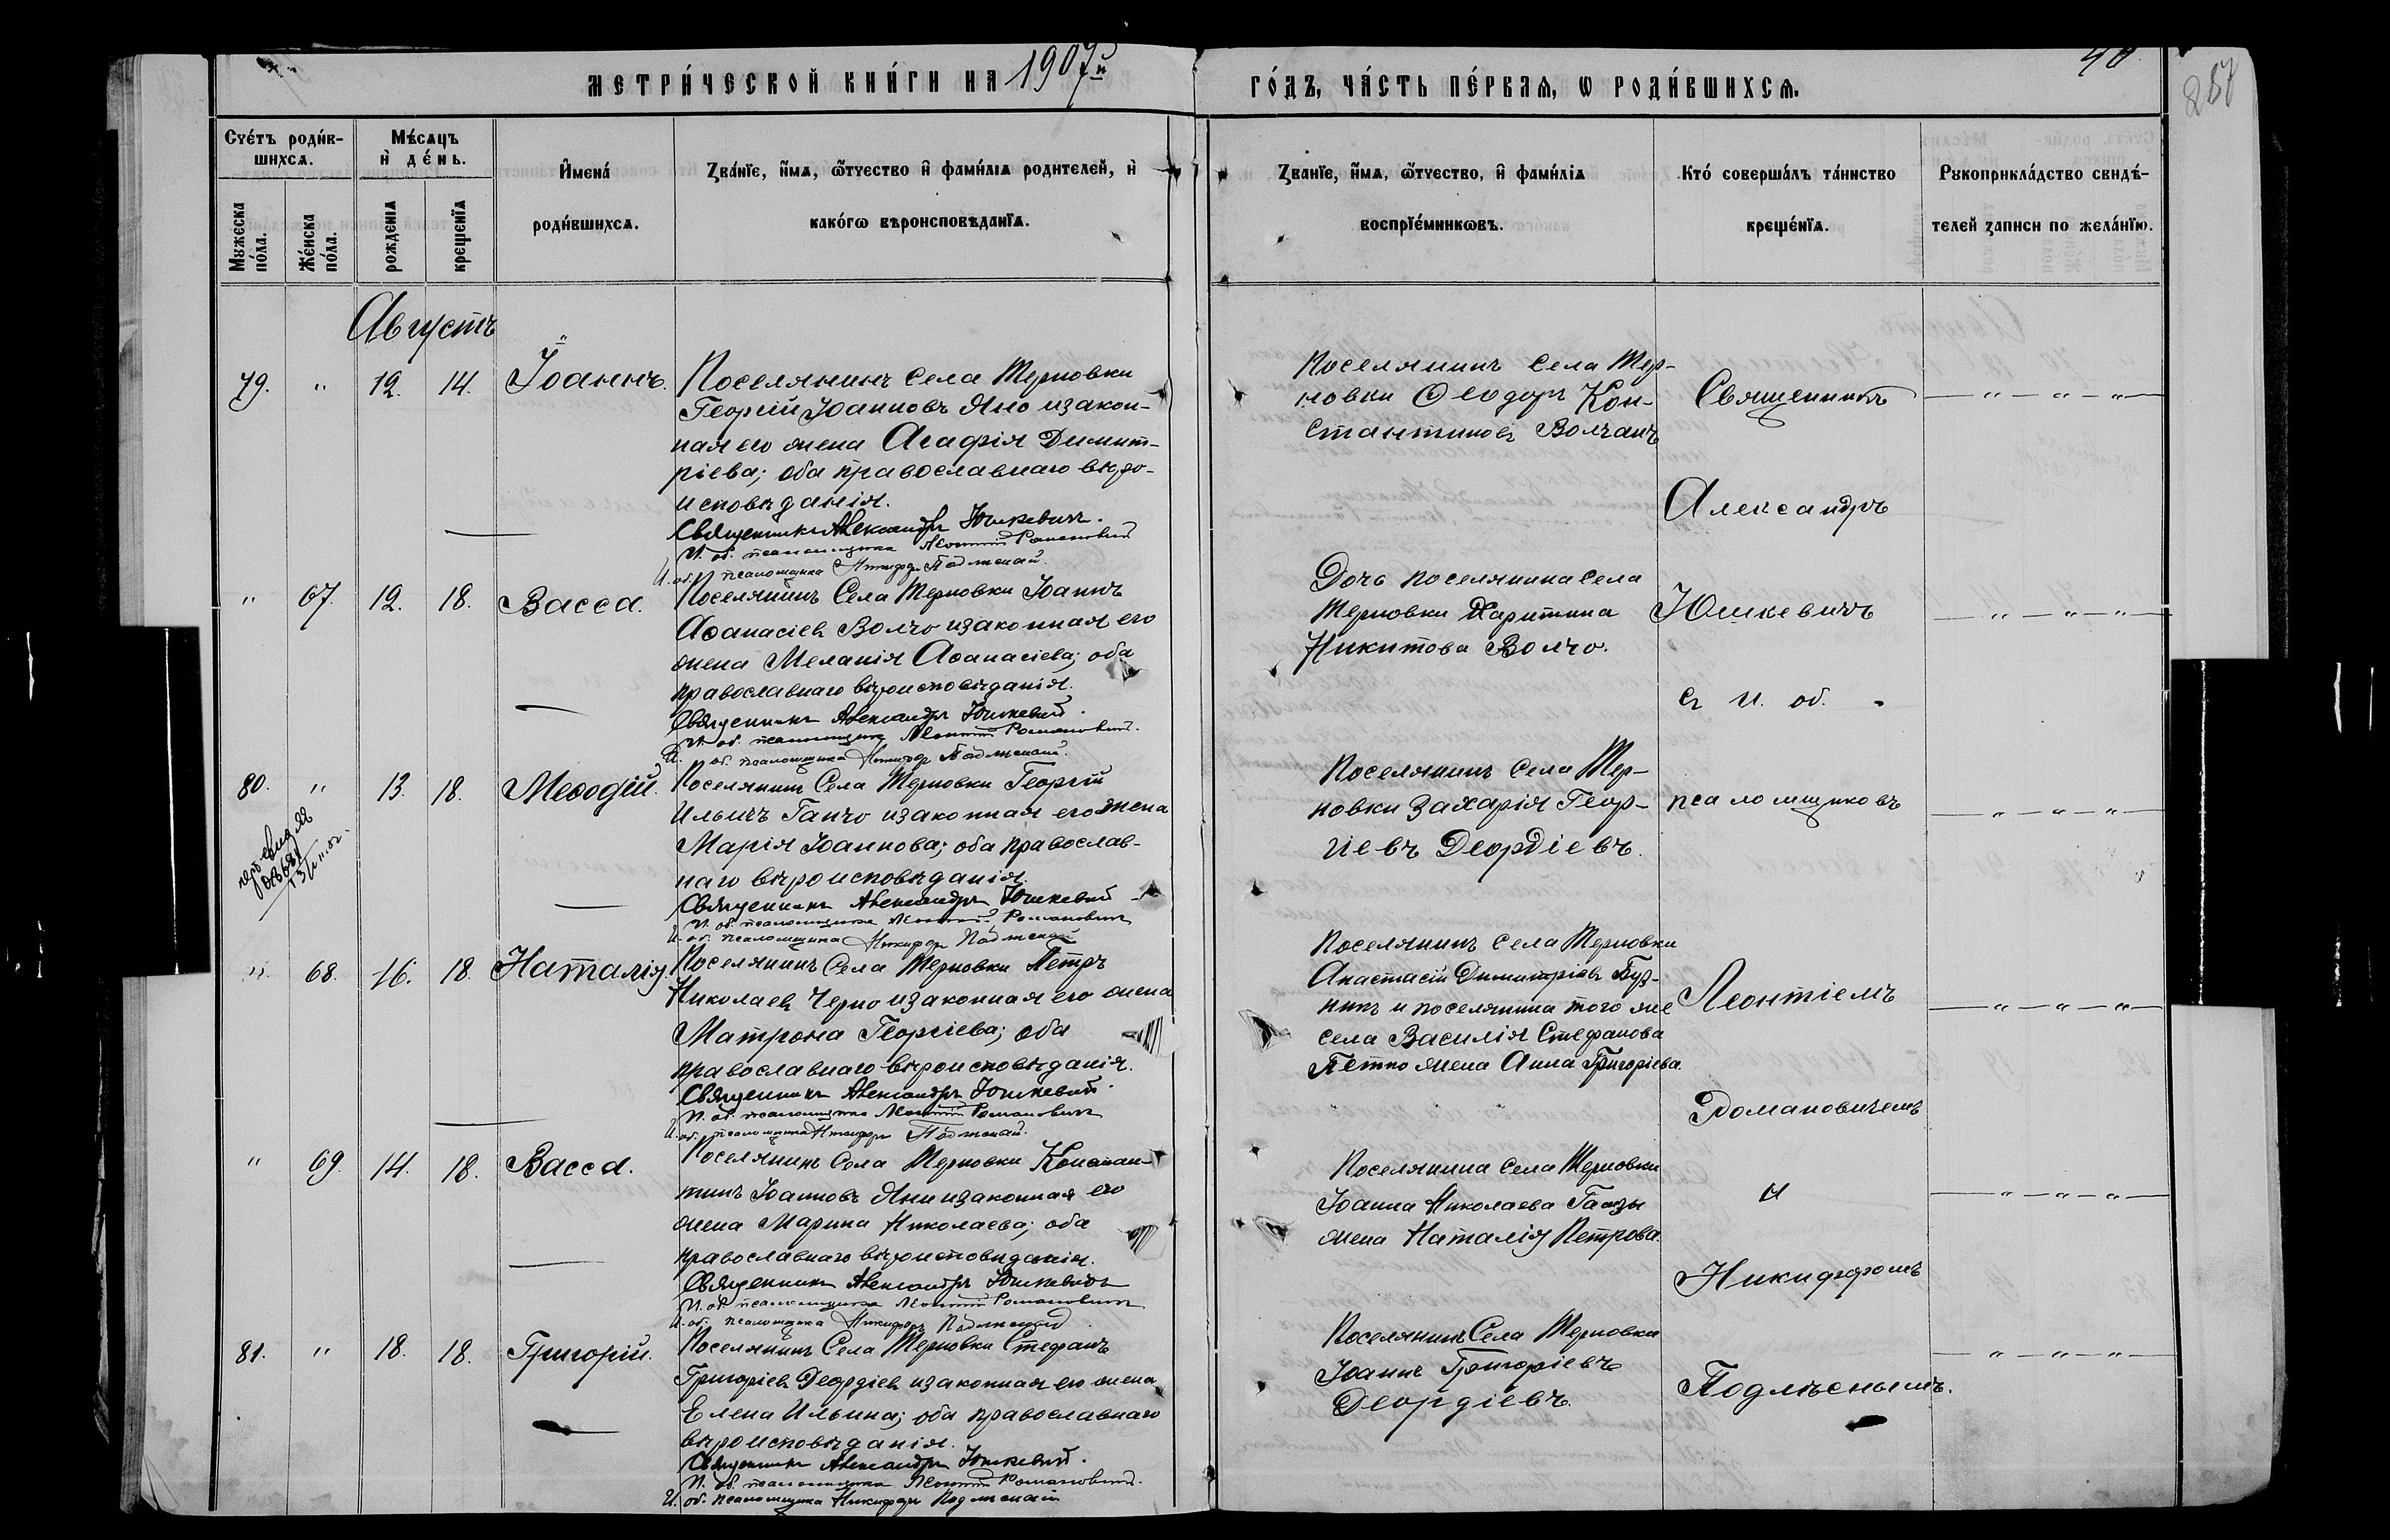 МЕТРИ́ЧЕСКОЙ КНИ́ГИ НА 1907й
ГО́ДЪ, ЧА́СТЬ ПЕ́РВАѦ, Ѡ РОДИ́ВШИХСѦ.
257
Сче́тъ роди́в-
шихсѧ.
Мꙋжеска
по́ла.
Же́нска
по́ла.
Мѣ́сѧцъ
и҆ де́нь.
рожденїѧ
крещенїѧ
И҆мена́
роди́вшихсѧ.
Зва́нїе, и҆́мѧ, ѻ҆́тчество и҆ фами́лїѧ родителей, и҆
како́гѡ вѣроисповѣ́данїѧ.
Зва́нїе, и҆́мѧ, ѻ҆́тчество, и҆ фами́лїѧ
воспрїе́мникѡвъ.
Кто́ соверша́лъ та́инство
креще́нїѧ.
Рꙋкоприкла́дство свидѣ́-
телей записи по жела́нїю.
Августъ
79. " 12. 14. Іоаннъ.
Поселянинъ Села Терновки
Георгій Іоанновъ Яно и законн-
ная его жена Агафія Димит-
ріева; оба православнаго вѣро-
исповѣданія.
Священникъ Александръ Юшкевичъ.
И. об. псаломщика Леонтій Романовичъ
И. об. псаломщика Никифоръ Подлѣсный.
Поселянинъ Села Тер-
новки Ѳеодоръ Кон-
стантиновъ Волчанъ
" 67. 12. 18. Васса.
Поселянинъ Села Терновки Іоаннъ
Аѳанасіевъ Волчо и законная его
жена Меланія Аѳанасіева; оба
православнаго вѣроисповѣданія.
Священникъ Александръ Юшкевичъ.
И. об. псаломщика Леонтій Романовичъ.
И. об. псаломщика Никифоръ Подлѣсный.
Дочь поселянина села
Терновки Харитина
Никитова Волчо.
80. " 13. 18. Меѳодій.
Поселянинъ Села Терновки Георгій
Ильичъ Ганчо и законная его жена
Марія Іоаннова; оба православ-
наго вѣроисповѣданія.
Священникъ Александръ Юшкевичъ
И. об. псаломщика Леонтій Романовичъ
И. об. псаломщика Никифоръ Подлѣсный
Поселянинъ Села Тер-
новки Захарія Геор-
гіевъ Деордіевъ.
" 68. 16. 18. Наталія.
Поселянинъ Села Терновки Петръ
Николаевъ Черно и законная его жена
Матрона Георгіева; оба
православнаго вѣроисповѣданія.
Священникъ Александръ Юшкевичъ.
И. об. псаломщика Леонтій Романовичъ
И. об. псаломщика Никифоръ Подлѣсный.
Поселянинъ Села Терновки
Анастасій Димитріевъ Бур-
никъ и поселянина того же
села Василія Стефанова
Петко жена Анна Григоріева.
" 69. 14. 18. Васса.
Поселянинъ Села Терновки Констан-
тинъ Іоанновъ Яни и законная его
жена Марина Николаева; оба
православнаго вѣроисповѣданія.
Священникъ Александръ Юшкевичъ
И. об. псаломщика Леонтій Романовичъ
И. об. псаломщика Никифоръ Подлѣсный
Поселянина Села Терновки
Іоанна Николаева Гайзы
жена Наталія Петрова.
81. " 18. 18. Григорій.
Поселянинъ Села Терновки Стефанъ
Григоріевъ Деордіевъ и законная его жена
Елена Ильина; оба православнаго
вѣроисповѣданія.
Священникъ Александръ Юшкевичъ.
И. об. псаломщика Леонтій Романовичъ.
И. об. псаломщика Никифоръ Подлѣсный
Поселянинъ Села Терновки
Іоаннъ Григоріевъ
Деордіевъ.
Священникъ
Александръ
Юшкевичъ
съ И. об.
псаломщиковъ
Леонтіемъ
Романовичемъ
и
Никифоромъ
Подлѣснымъ.